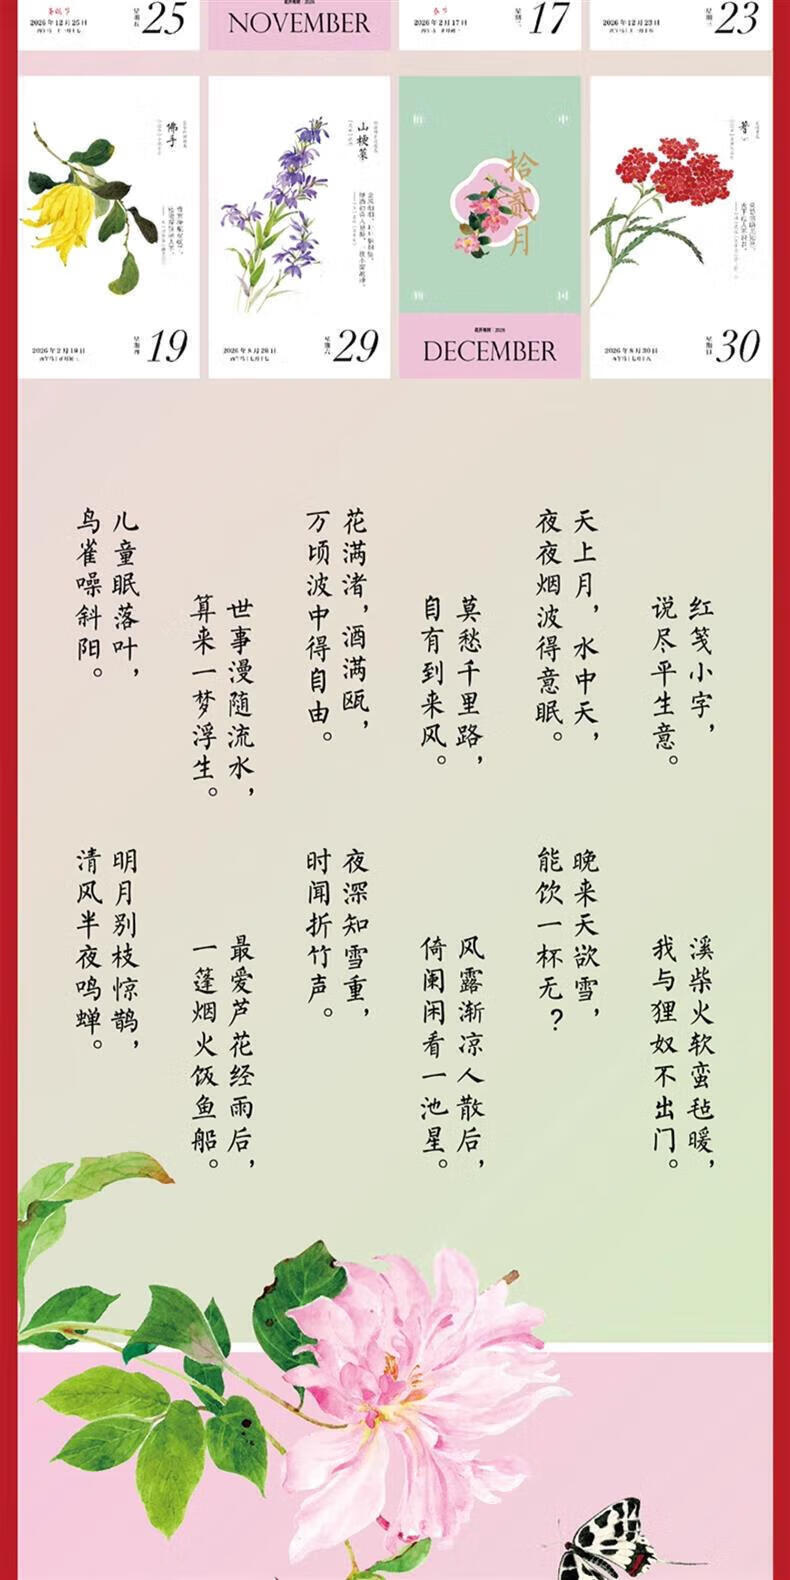 圣诞节
2026年12月25日
星期五
25
NOVEMBER
春节
2026年2月17日
星期二
17
2026年12月23日
星期三
23
佛手
2026年2月19日
星期四
19
山梗菜
2026年8月29日
星期六
29
拾贰月
中
国
花开有时 | 2026
DECEMBER
蓍
2026年8月30日
星期日
30
红笺小字，
说尽平生意。
天上月，水中天，
夜夜烟波得意眠。
莫愁千里路，
自有到来风。
花满渚，酒满瓯，
万顷波中得自由。
世事漫随流水，
算来一梦浮生。
儿童眠落叶，
鸟雀噪斜阳。
溪柴火软蛮毡暖，
我与狸奴不出门。
晚来天欲雪，
能饮一杯无？
风露渐凉人散后，
倚阑闲看一池星。
夜深知雪重，
时闻折竹声。
最爱芦花经雨后，
一篷烟火饭鱼船。
明月别枝惊鹊，
清风半夜鸣蝉。